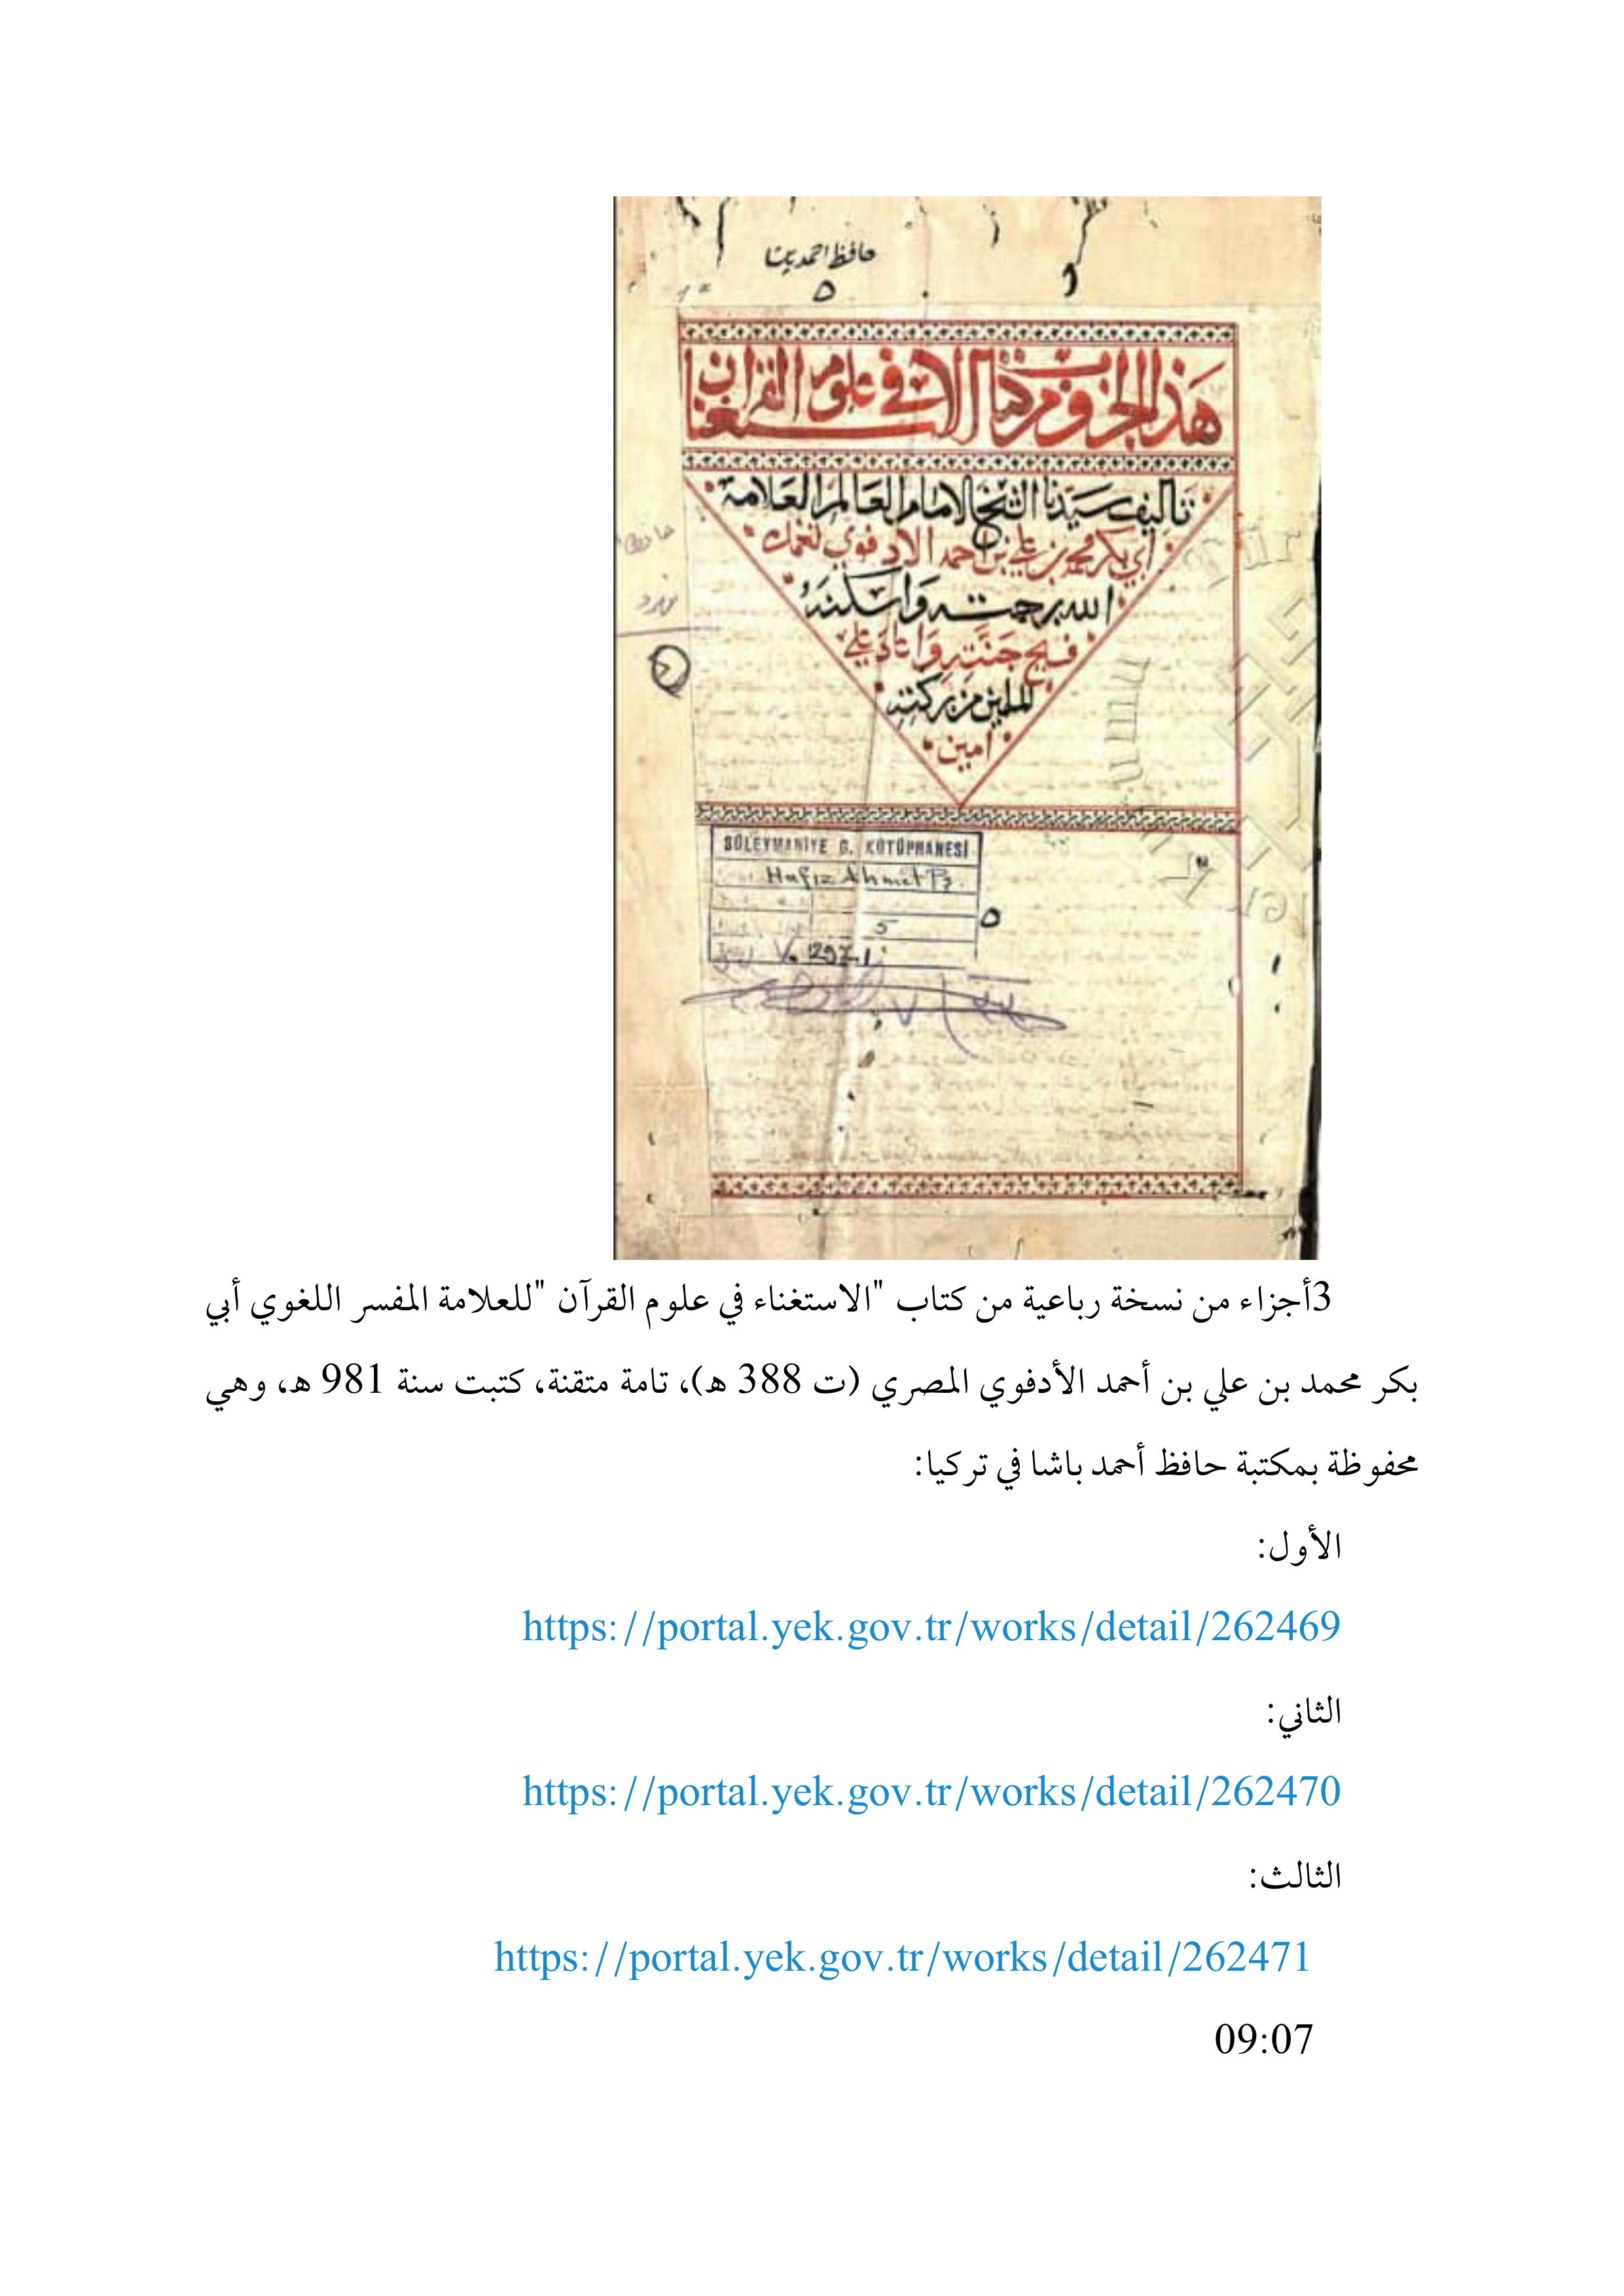 حافظ احمد پاشا
٥
هذا الجزو من كتاب الاستغنا في علوم القران
تاليف سيدنا الشيخ الامام العالم العلامة
ابي بكر محمد بن علي بن احمد الادفوي تغمده
الله برحمته واسكنه
فسيح جنته واعاد علي
المسلمين من بركته
امين
SÜLEYMANİYE G. KÜTÜPHANESİ
Hafız Ahmet Pş.
5
297.1
3أجزاء من نسخة رباعية من كتاب "الاستغناء في علوم القرآن "للعلامة المفسر اللغوي أبي
بكر محمد بن علي بن أحمد الأدفوي المصري (ت 388 هـ)، تامة متقنة، كتبت سنة 981 هـ، وهي
محفوظة بمكتبة حافظ أحمد باشا في تركيا:
الأول:
https://portal.yek.gov.tr/works/detail/262469
الثاني:
https://portal.yek.gov.tr/works/detail/262470
الثالث:
https://portal.yek.gov.tr/works/detail/262471
09:07